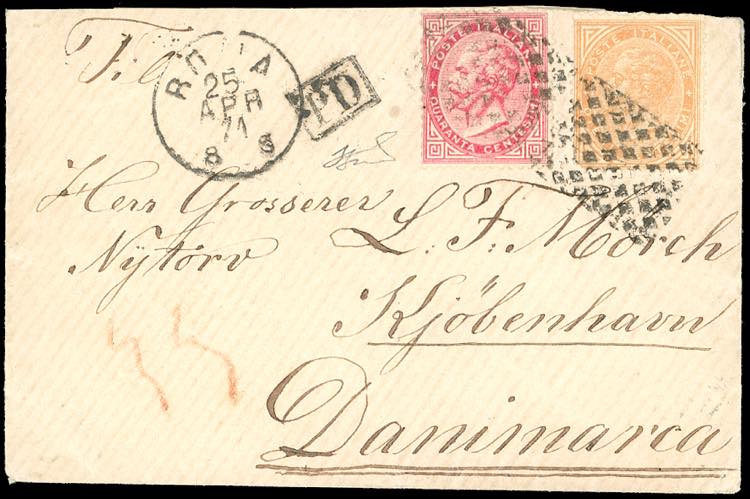 ROMA
25
APR
71
8 S
PD
POSTE ITALIANE
QUARANTA CENTESIMI
POSTE ITALIANE
Herr Grosserer L. F. Morch
Nytorv
Kjöbenhavn
Danimarca